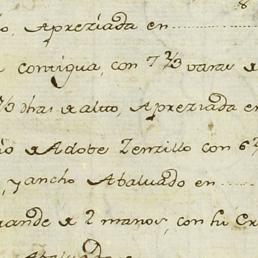 Apreziada en
contigua, con 7 2/3 varas
dhas de alto, Apreziada en
de Adobe Zenzillo con 6
, y ancho Abaluado en
grande de 2 manos, con su